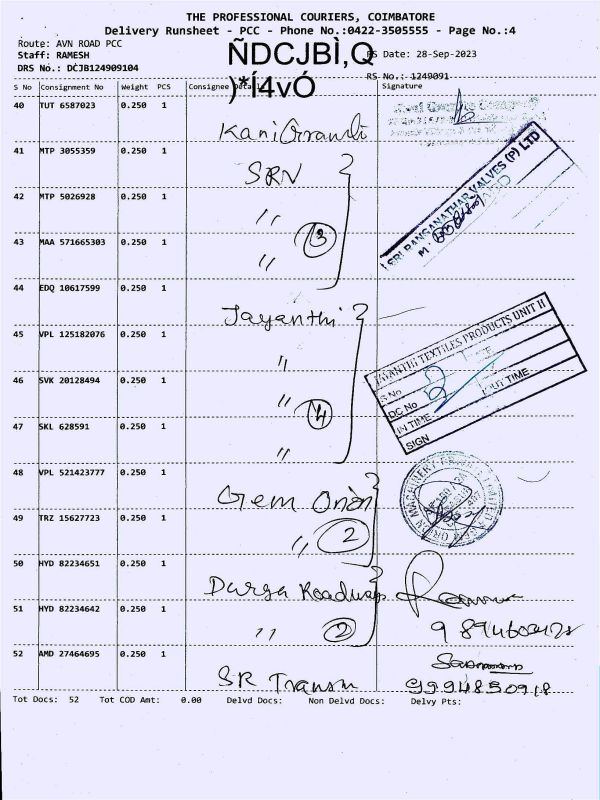 THE PROFESSIONAL COURIERS, COIMBATORE
Delivery Runsheet - PCC - Phone No.:0422-3505555 - Page No.:4
Route: AVN ROAD PCC
Staff: RAMESH
DRS No.: DCJB124909104
ÑDCJBÌ,Q
)*Í4vÓ
RS Date: 28-Sep-2023
RS No.: 1249091
S No Consignment No Weight PCS Consignee Details Signature
40 TUT 6587023 0.250 1
41 MTP 3055359 0.250 1 SRN
42 MTP 5026928 0.250 1 〃
43 MAA 571665303 0.250 1 〃 3
SRI RANGANATHAR VALVES (P) LTD
44 EDQ 10617599 0.250 1 Jayanthi
45 VPL 125182076 0.250 1 〃
46 SVK 20128494 0.250 1 〃 4
47 SKL 628591 0.250 1 〃
JAYANTHI TEXTILES PRODUCTS UNIT II
S.No
DC.No
IN TIME OUT TIME
SIGN
48 VPL 521423777 0.250 1 Gem
49 TRZ 15627723 0.250 1 〃 2
50 HYD 82234651 0.250 1 Durga Roadways
51 HYD 82234642 0.250 1 〃 2
52 AMD 27464695 0.250 1 SR
9994850918
Tot Docs: 52 Tot COD Amt: 0.00 Delvd Docs: Non Delvd Docs: Delvy Pts: